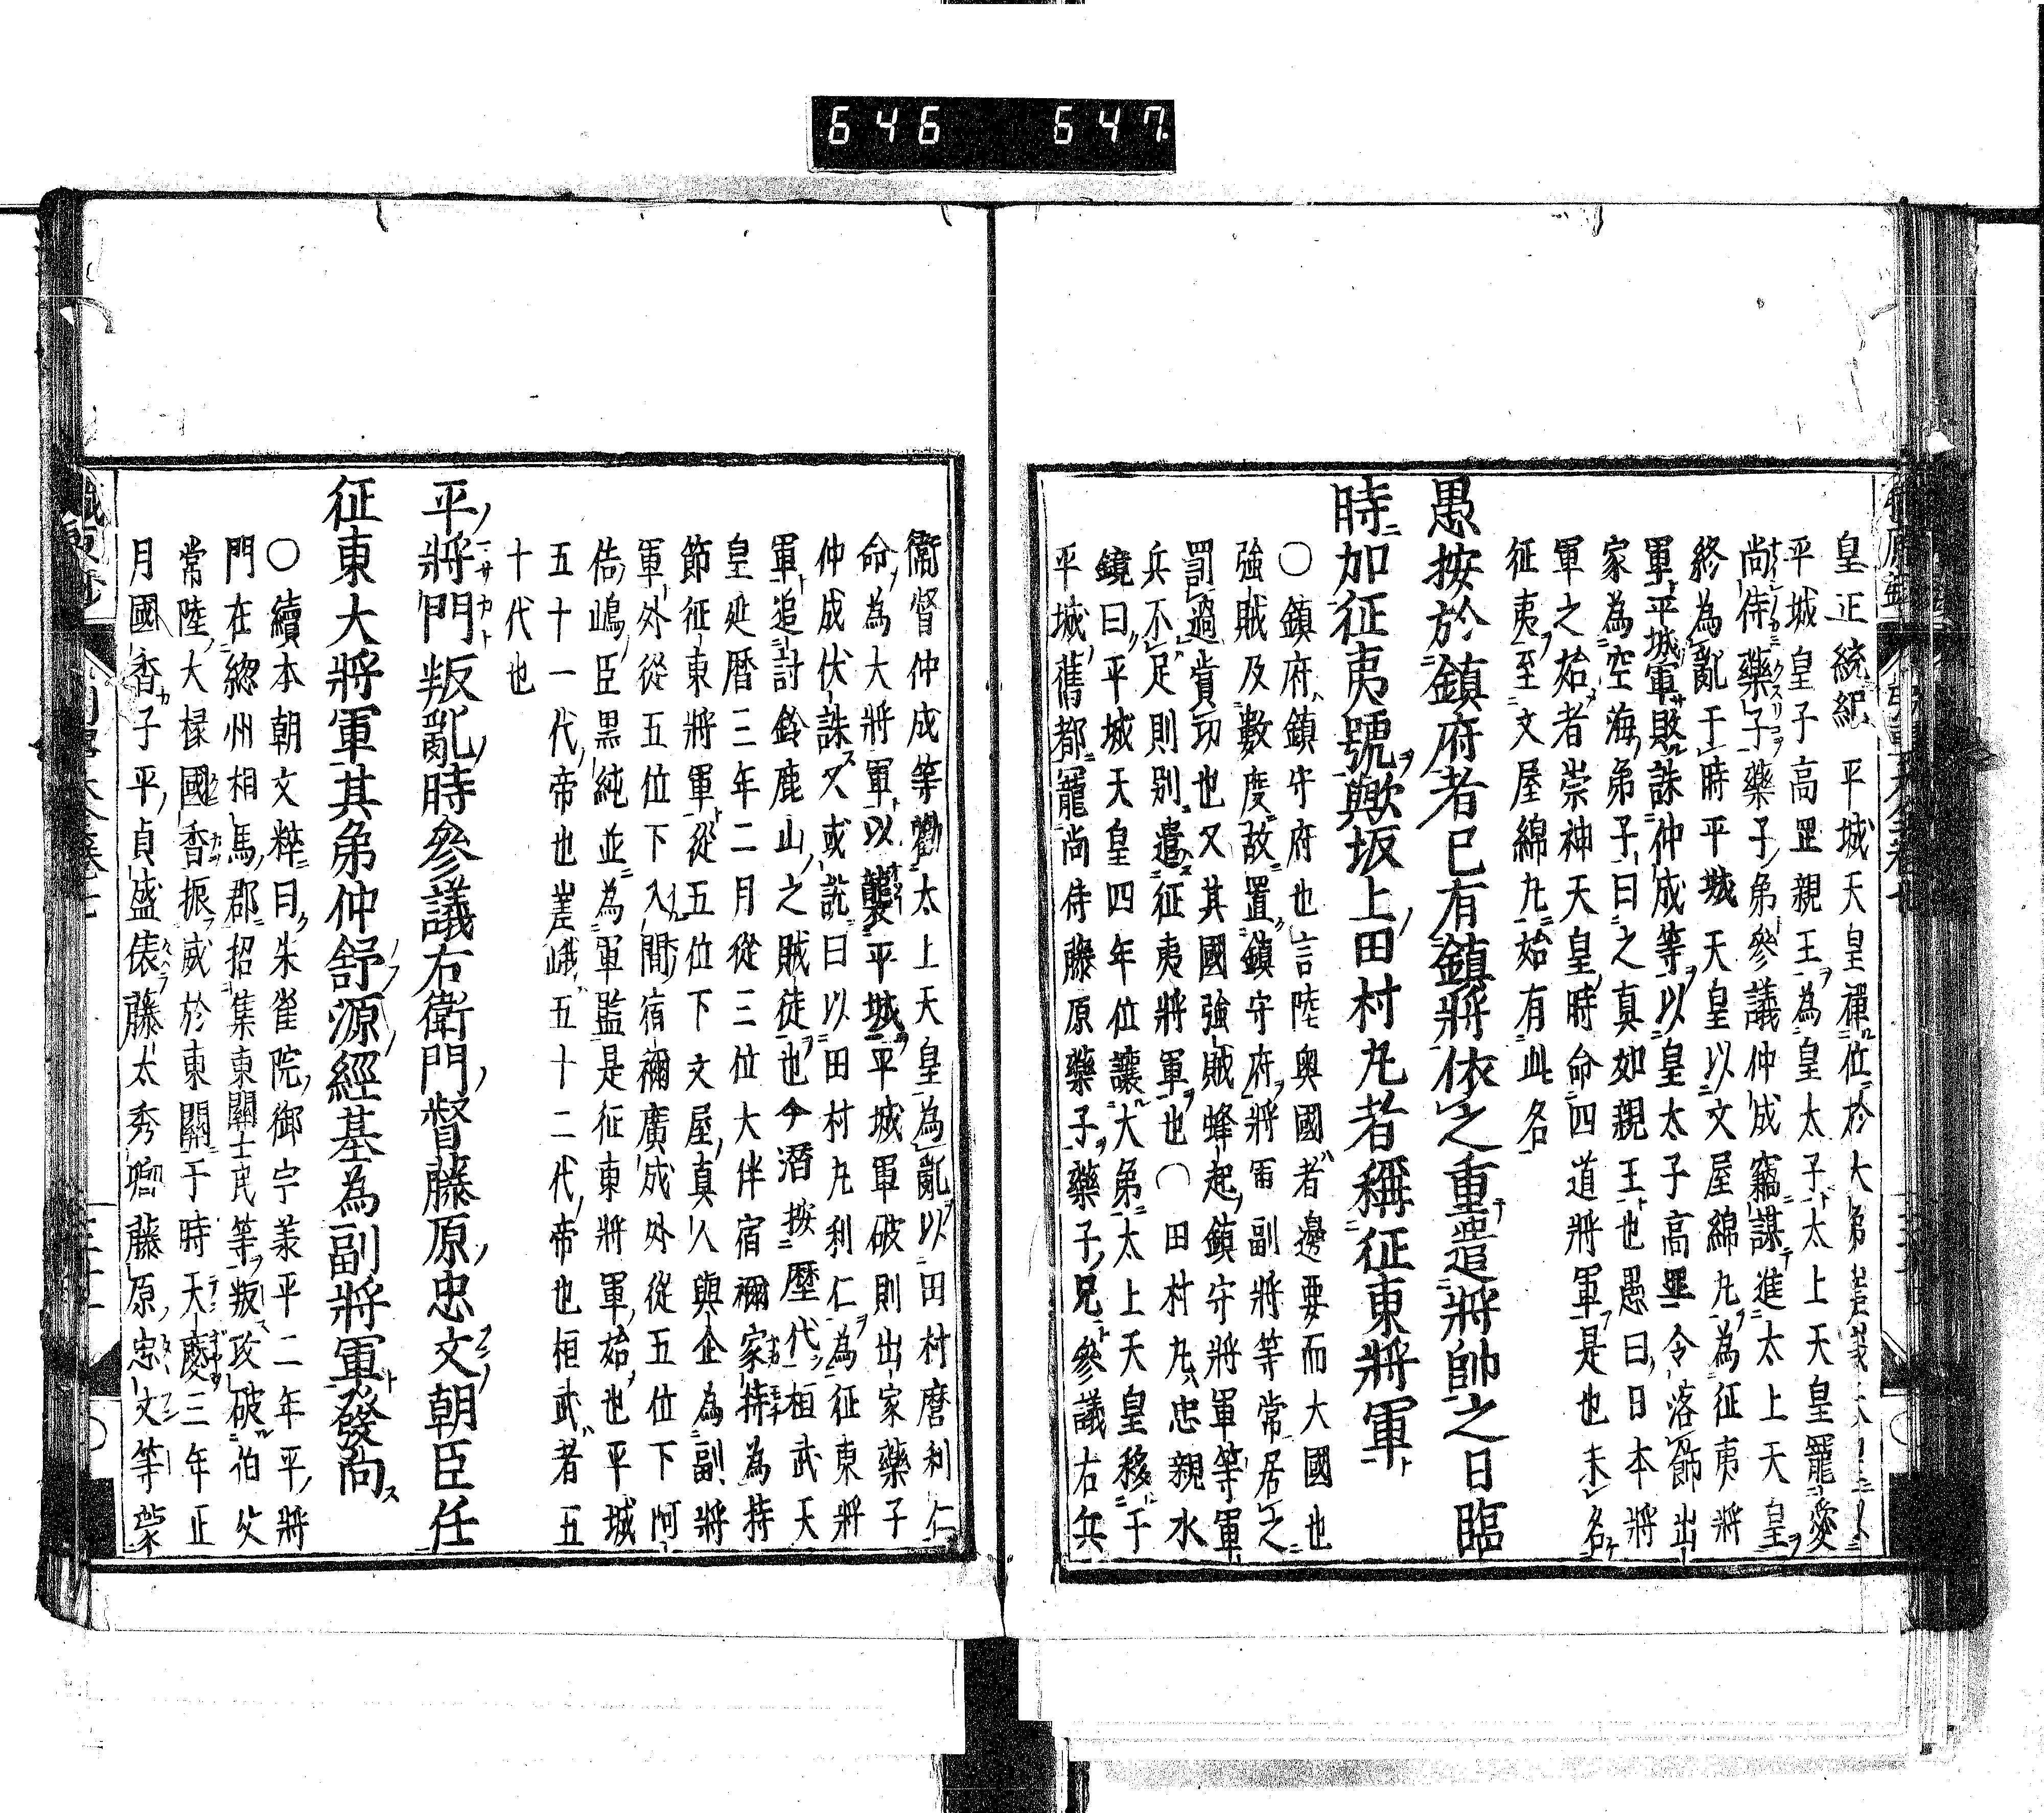 646 647
皇正統紀平城天皇禪位於大弟
平城皇子高岳親王為皇太子太上天皇寵愛
尚侍藥子藥子弟參議仲成竊謀進太上天皇
終為亂于時平城天皇以文屋綿丸為征夷將
軍平城軍敗誅仲成等以皇太子高岳令落飾出
家為空海弟子曰之真如親王也愚曰日本將
軍之始者崇神天皇時命四道將軍是也未名
征夷至文屋綿丸始有此名
愚按於鎮府者已有鎮將依之重遣將帥之日臨
時加征夷號歟坂上田村丸者稱征東將軍
〇鎮府鎮守府也言陸奧國者邊要而大國也
強賊及數度故置鎮守府將軍副將等常居之
罰過賞功也又其國強賊蜂起鎮守將軍等軍
兵不足則別遣征夷將軍也〇田村丸忠親水
鏡曰平城天皇四年位讓大弟太上天皇移于
平城舊都寵尚侍藤原藥子藥子兄參議右兵
衞督仲成等勸太上天皇為亂以田村麿利仁
命為大將軍以襲平城平城軍破則出家藥子
仲成伏誅又或說曰以田村丸利仁為征東將
軍追討鈴鹿山之賊徒也今潛按歷代桓武天
皇延曆三年二月從三位大伴宿禰家持為持
節征東將軍從五位下文屋真人與企為副將
軍外從五位下入間宿禰廣成外從五位下阿
倍嶋臣黑純並為軍監是征東將軍始也平城
五十一代帝也嵯峨五十二代帝也桓武者五
十代也
平將門叛亂時參議右衛門督藤原忠文朝臣任
征東大將軍其弟仲舒源經基為副將軍發向
〇續本朝文粹曰朱雀院御宇羕平二年平將
門在總州相馬郡招集東關士民等叛攻破伯父
常陸大椽國香振威於東關于時天慶三年正
月國香子平貞盛俵藤太秀鄉藤原忠文等蒙